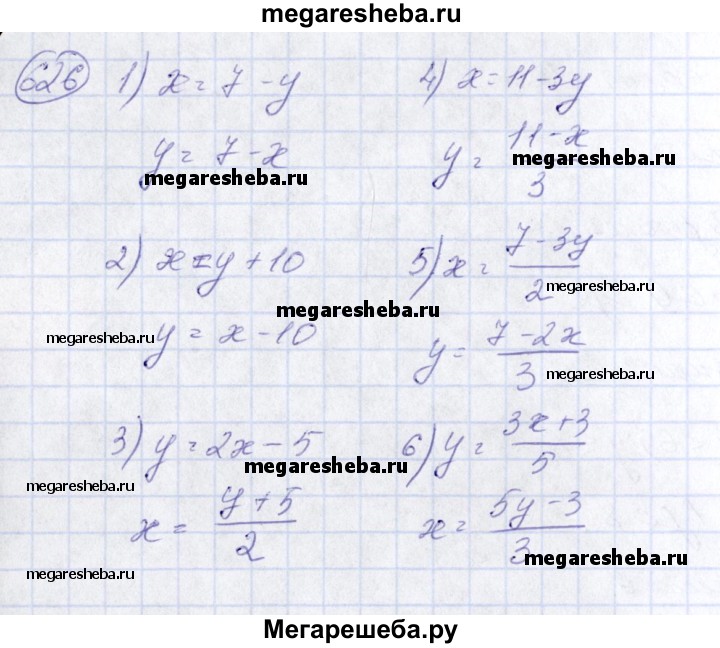 megaresheba.ru
626 1) x = 7 - y
y = 7 - x
megaresheba.ru
2) x = y + 10
megaresheba.ru
y = x - 10
3) y = 2x - 5
megaresheba.ru
megaresheba.ru
x = (y + 5)/2
megaresheba.ru
4) x = 11 - 3y
y = (11 - x)/3
megaresheba.ru
5) x = (7 - 3y)/2
megaresheba.ru
y = (7 - 2x)/3
megaresheba.ru
6) y = (3x + 3)/5
x = (5y - 3)/3
megaresheba.ru
Мегарешеба.ру